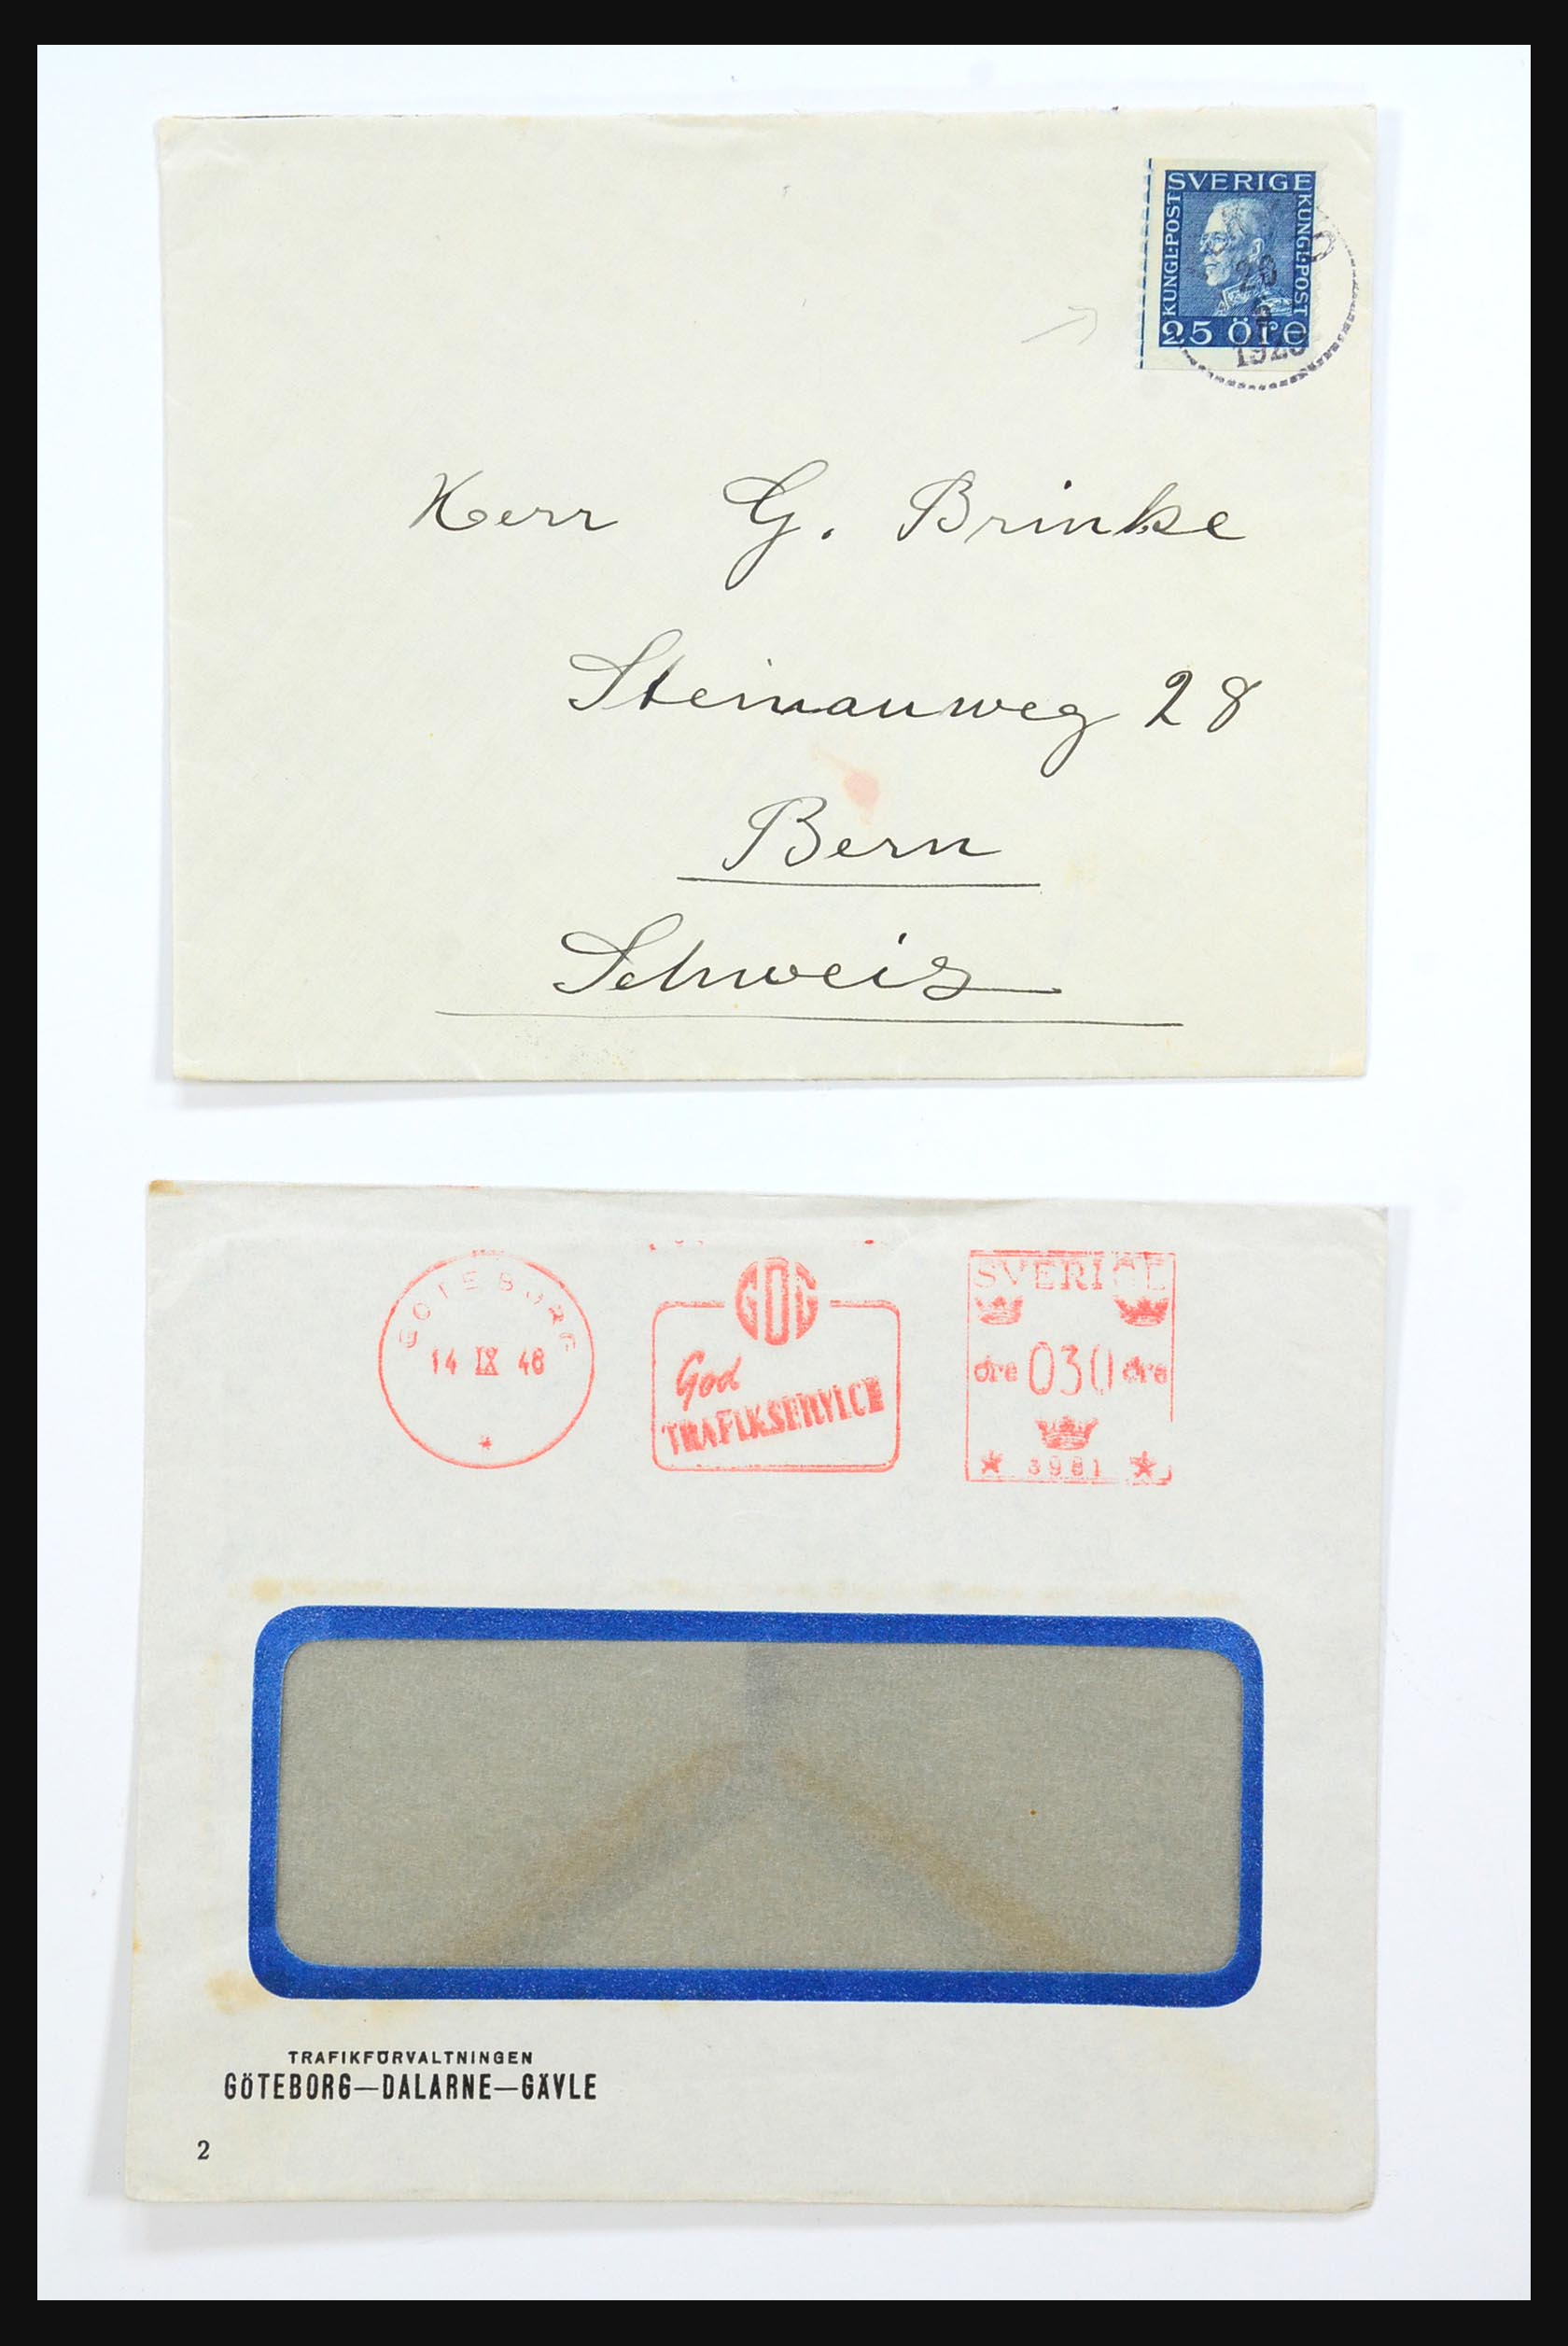 SVERIGE
KUNGL·POST
KUNGL·POST
25 ÖRE
Herr G. Brinke
Steinauweg 28
Bern
Schweiz
GÖTEBORG
14 IX 48
GDG
God
TRAFIKSERVICE
SVERIGE
öre 030 öre
3981
TRAFIKFÖRVALTNINGEN
GÖTEBORG—DALARNE—GÄVLE
2